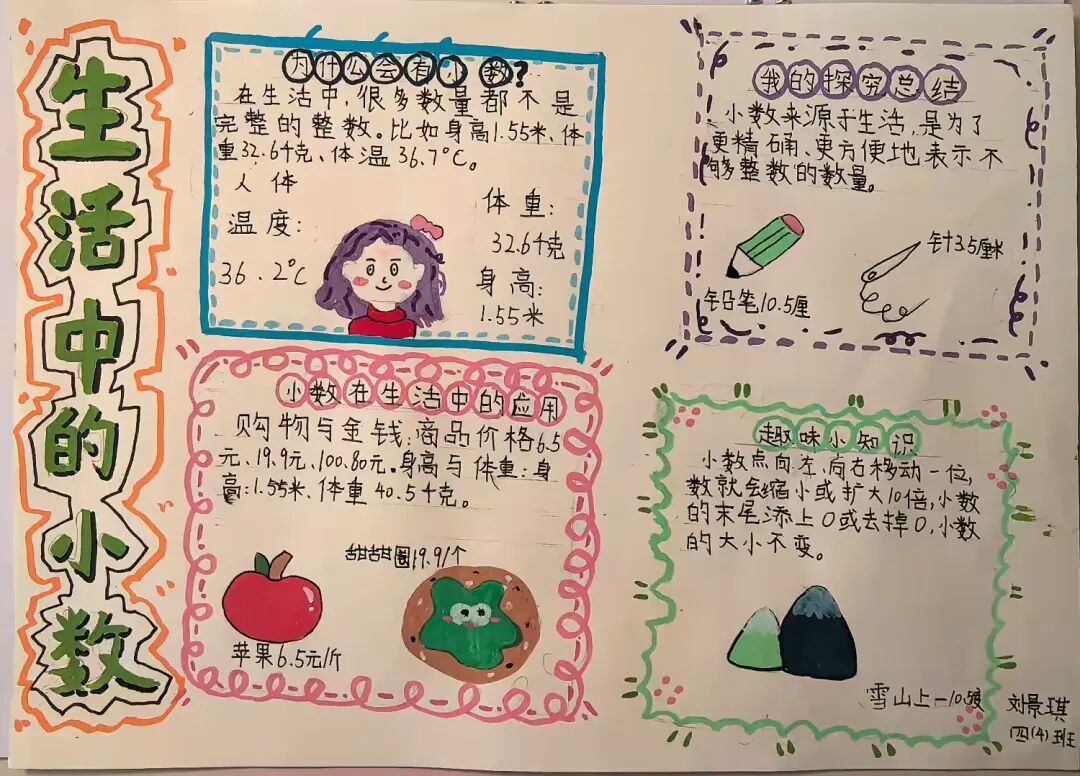 生活中的小数
为什么会有小数?
在生活中,很多数量都不是
完整的整数。比如身高1.55米、体
重32.6千克、体温36.7°C。
人体
温度:
36.2°C
体重:
32.6千克
身高:
1.55米
我的探究总结
小数来源于生活,是为了
更精确、更方便地表示不
够整数的数量。
铅笔10.5厘
针3.5厘米
小数在生活中的应用
购物与金钱:商品价格6.5
元、19.9元、100.80元。身高与体重:身
高:1.55米、体重40.5千克。
甜甜圈19.9/个
苹果6.5元/斤
趣味小知识
小数点向左、向右移动一位,
数就会缩小或扩大10倍,小数
的末尾添上0或去掉0,小数
的大小不变。
雪山上-10.5度
刘景琪
四(4)班